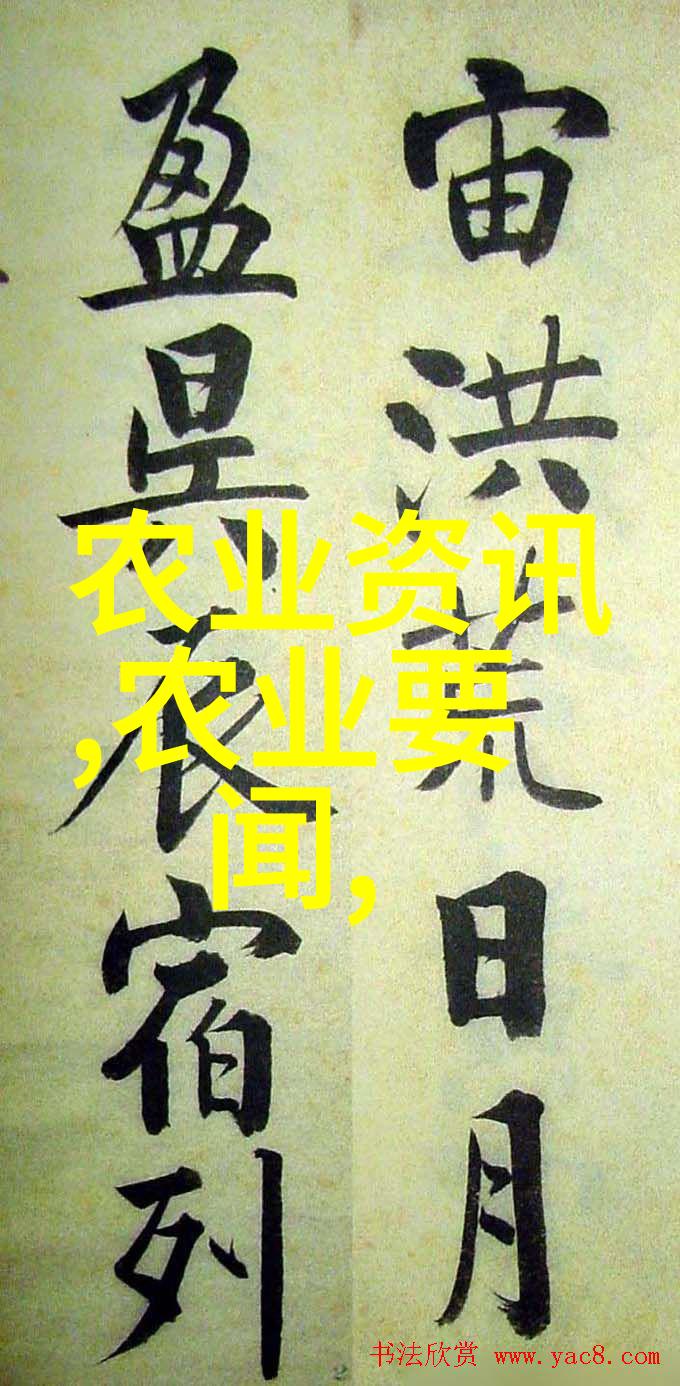 宙洪荒日月
盈昃辰宿列
农业资讯
,农业要
闻,
2
书法欣赏 www.yac8.com